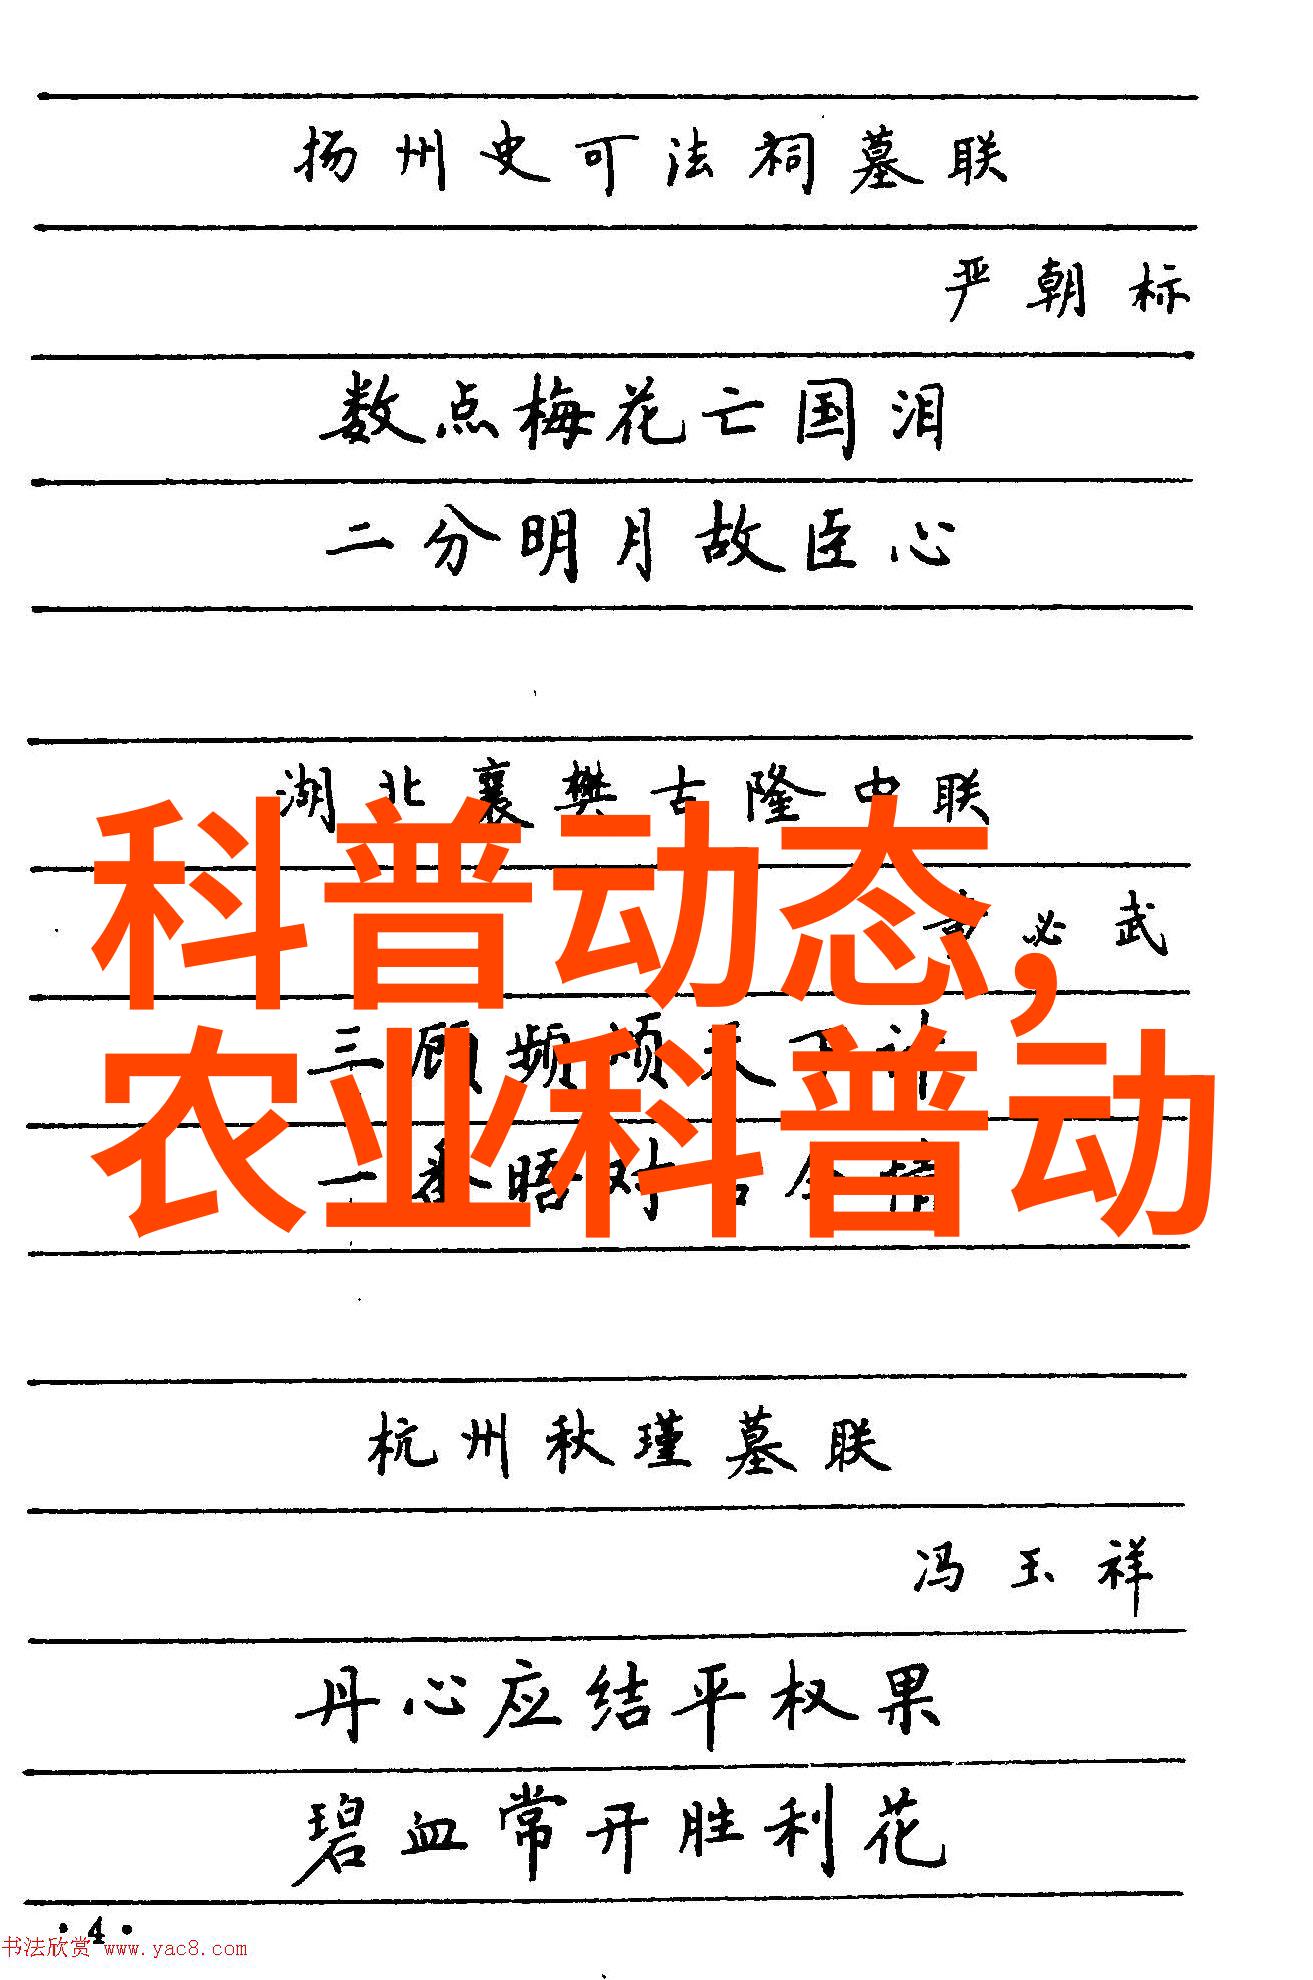 扬州史可法祠墓联
严朝标
数点梅花亡国泪
二分明月故臣心
湖北襄樊古隆中联
必武
科普动态,
三顾频烦天下计
农业科普动
一番晤对古今情
杭州秋瑾墓联
冯玉祥
丹心应结平权果
碧血常开胜利花
·4·
书法欣赏 www.yac8.com